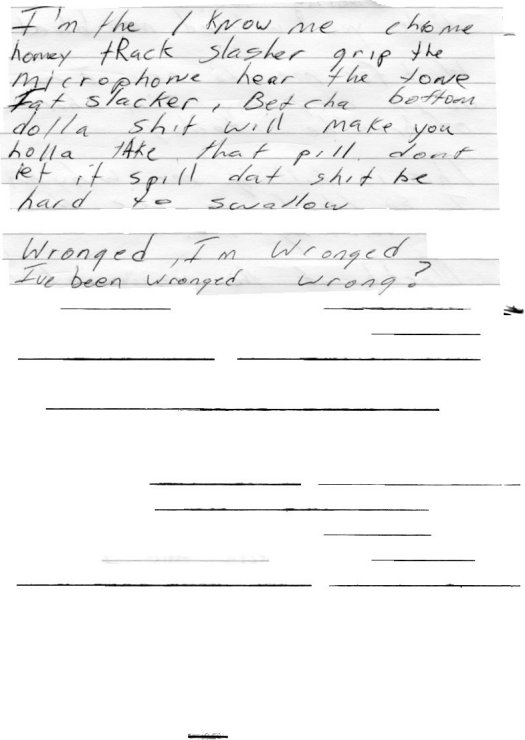 I'm the 1 Know me chrome
homey tRack slasher grip the
microphone hear the tone
Fat slacker, Betcha bottom
dolla shit will make you
holla tAke that pill dont
let it spill dat shit be
hard to swallow
Wronged, I'm Wronged
I've been wronged wrong?